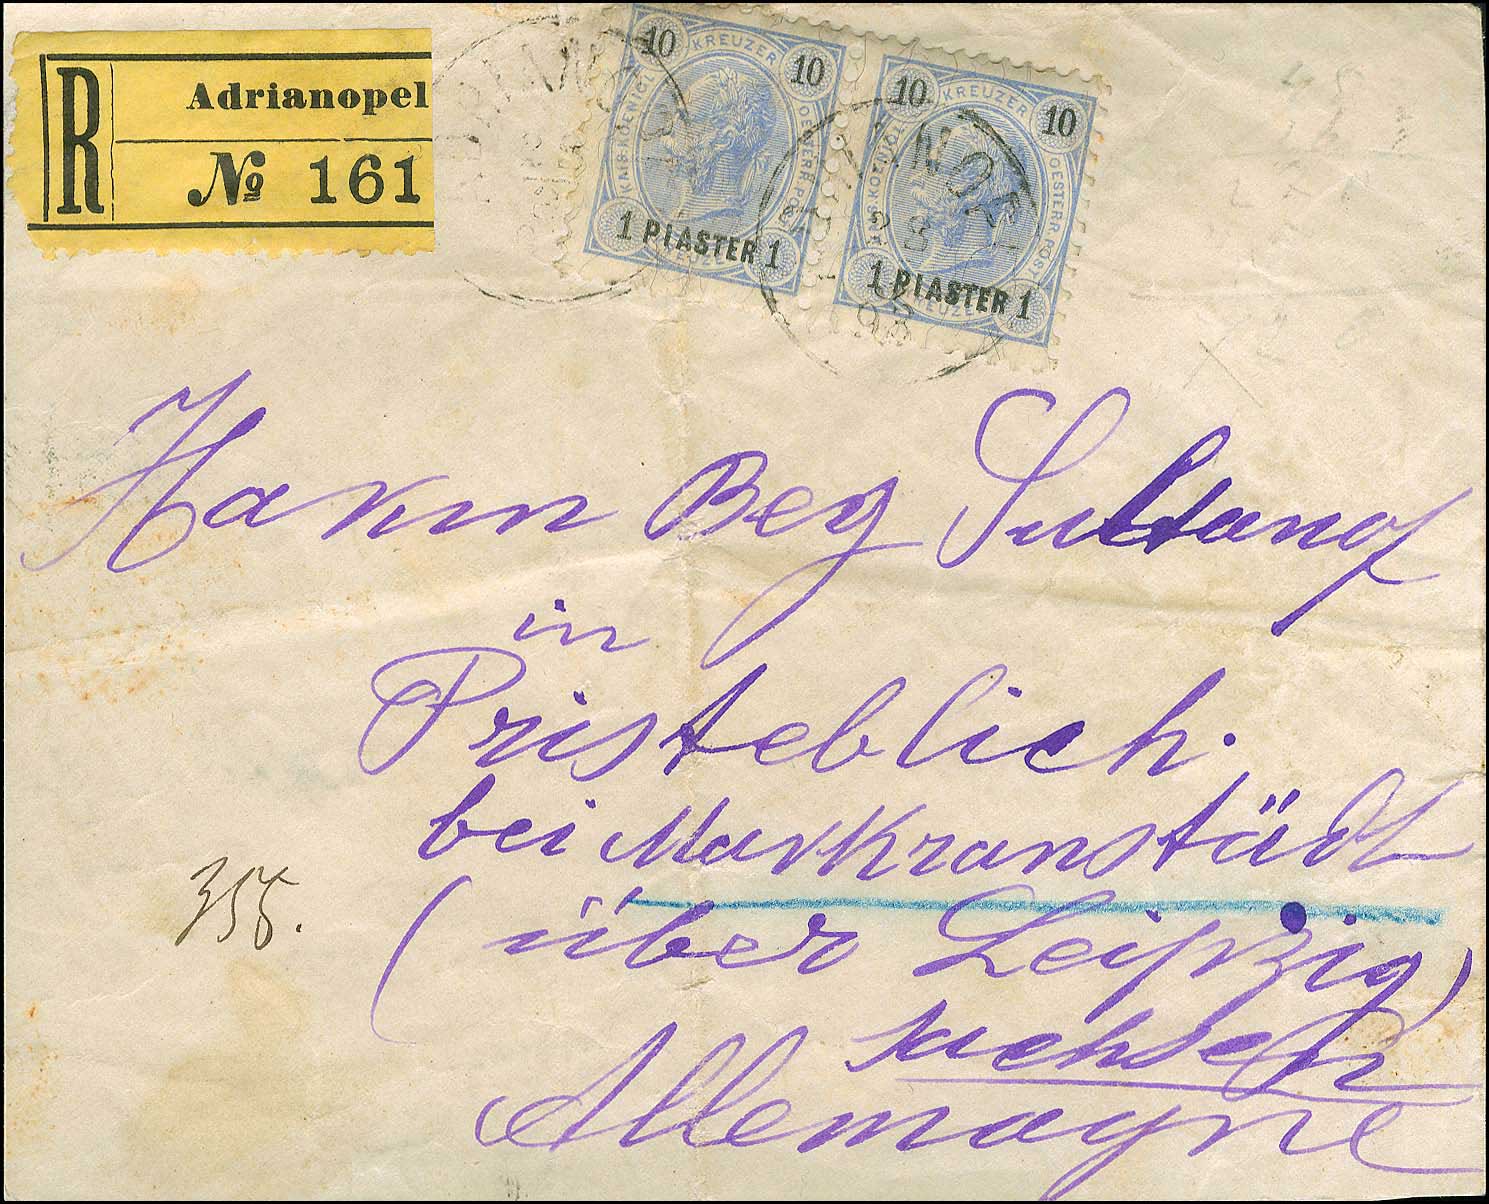 R
Adrianopel
№ 161
10 KREUZER 10
KAIS. KOENIGL.
OESTERR. POST
1 PIASTER 1
10 KREUZER 10
KAIS. KOENIGL.
OESTERR. POST
1 PIASTER 1
98
Harun Bey Sultanof
in
Pristeblich.
bei Markranstädt
(über Leipzig)
Sachsen
Allemagne